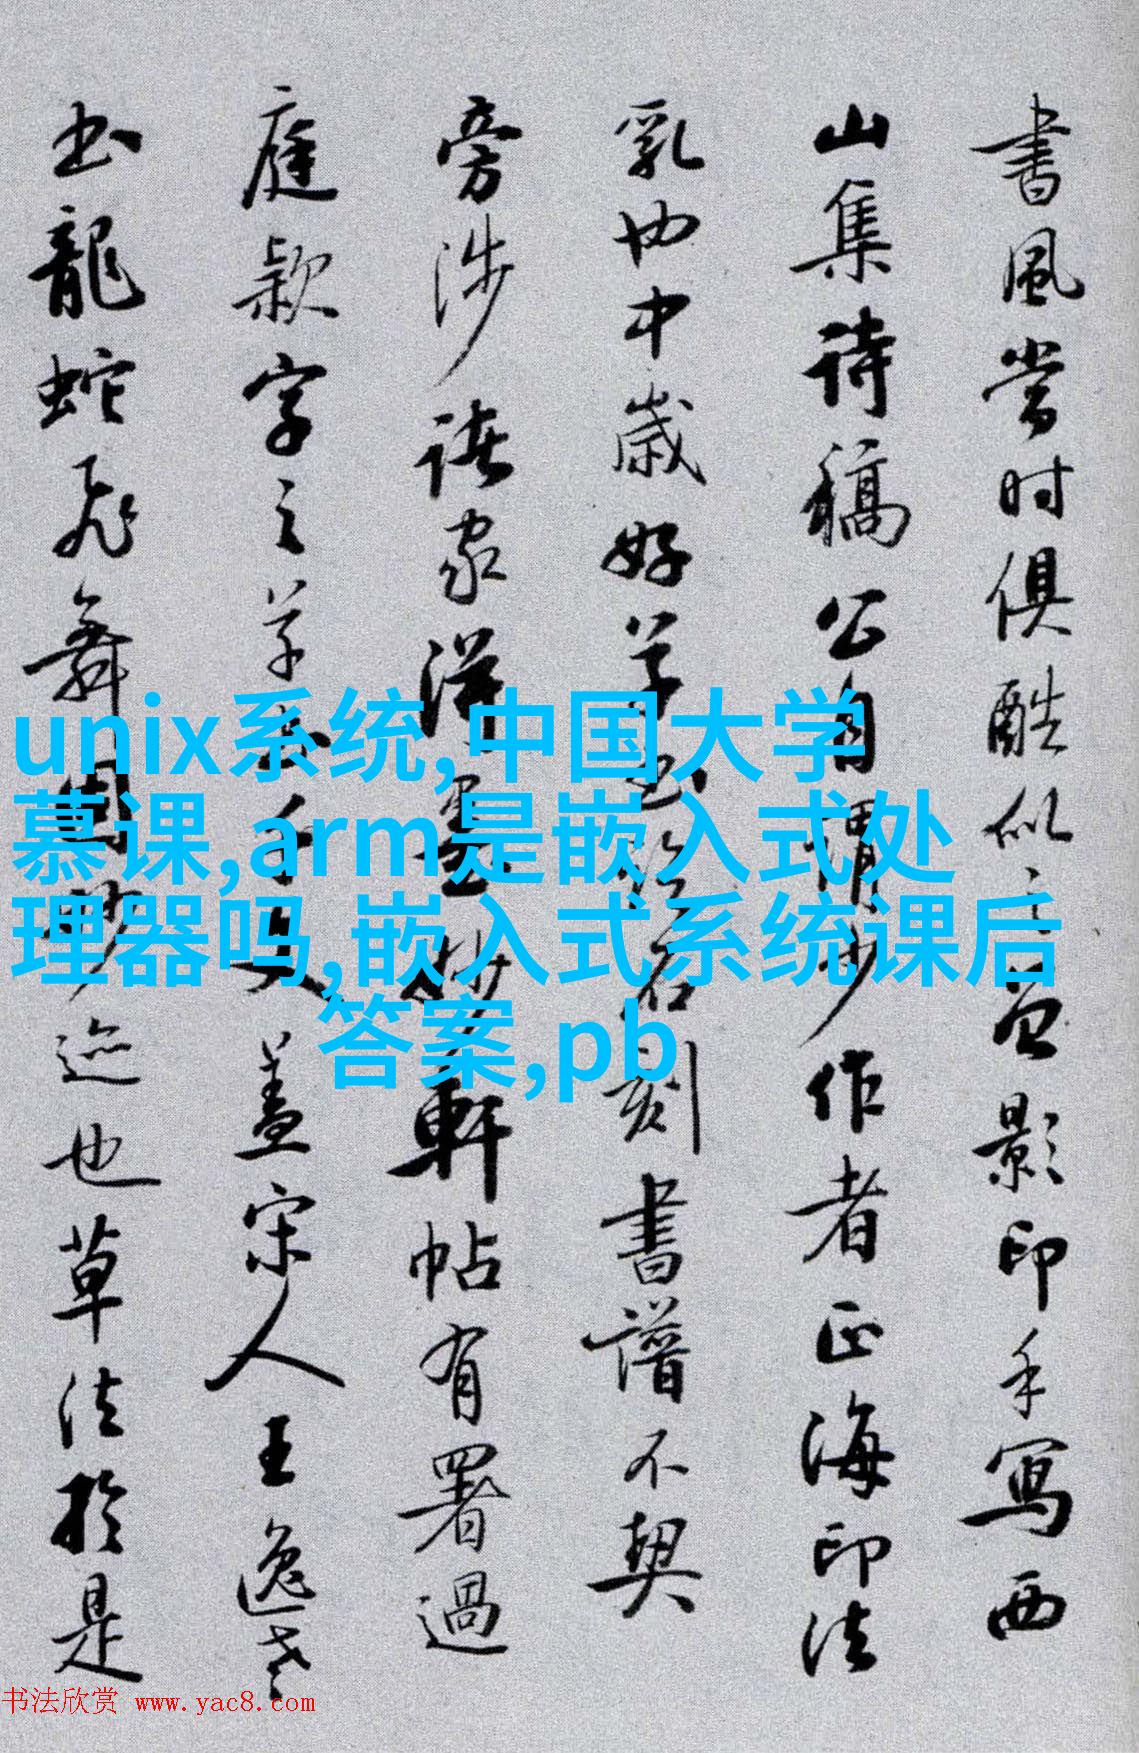 書風当时俱酷似之曾影印手写西
山集诗稿公自谓少作者正海印法
乳也中歲好草书
石刻書譜不契
旁涉诸家
妙軒帖有署過
庭款字之草书千文蓋宋人王逸老
书龍蛇飛舞
妙迹也草法於是
unix系统,中国大学
慕课,arm是嵌入式处
理器吗,嵌入式系统课后
答案,pb
书法欣赏 www.yac8.com